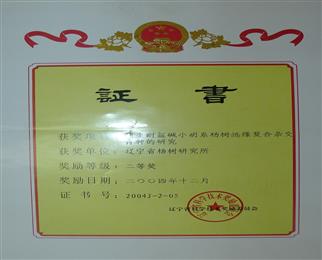 証書
获奖项目 耐盐碱小胡系杨树远缘复合杂交
育种的研究
获奖单位：辽宁省杨树研究所
奖励等级：二等奖
奖励日期：二〇〇四年十二月
证书号：2004J-2-05